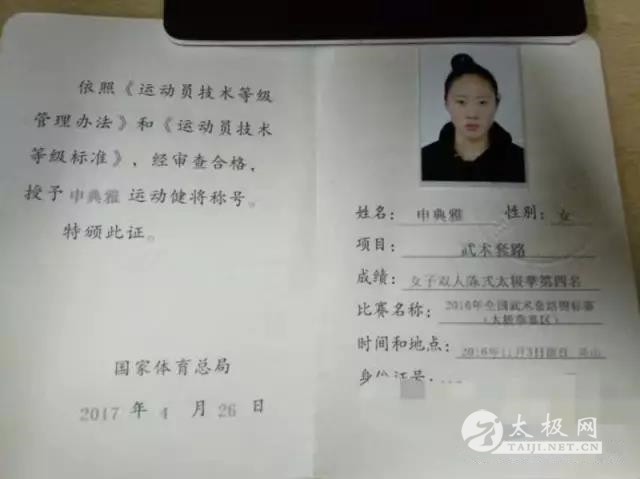 依照《运动员技术等级
管理办法》和《运动员技术
等级标准》，经审查合格，
授予 申典雅 运动健将称号。
特颁此证。
国家体育总局
2017 年 4 月 26 日
姓名： 申典雅 性别： 女
项目： 武术套路
成绩： 女子双人陈式太极拳第四名
比赛名称： 2016年全国武术套路锦标赛
（太极拳赛区）
时间和地点： 2016年11月3日
身份证号：
太极网
TAIJI.NET.CN